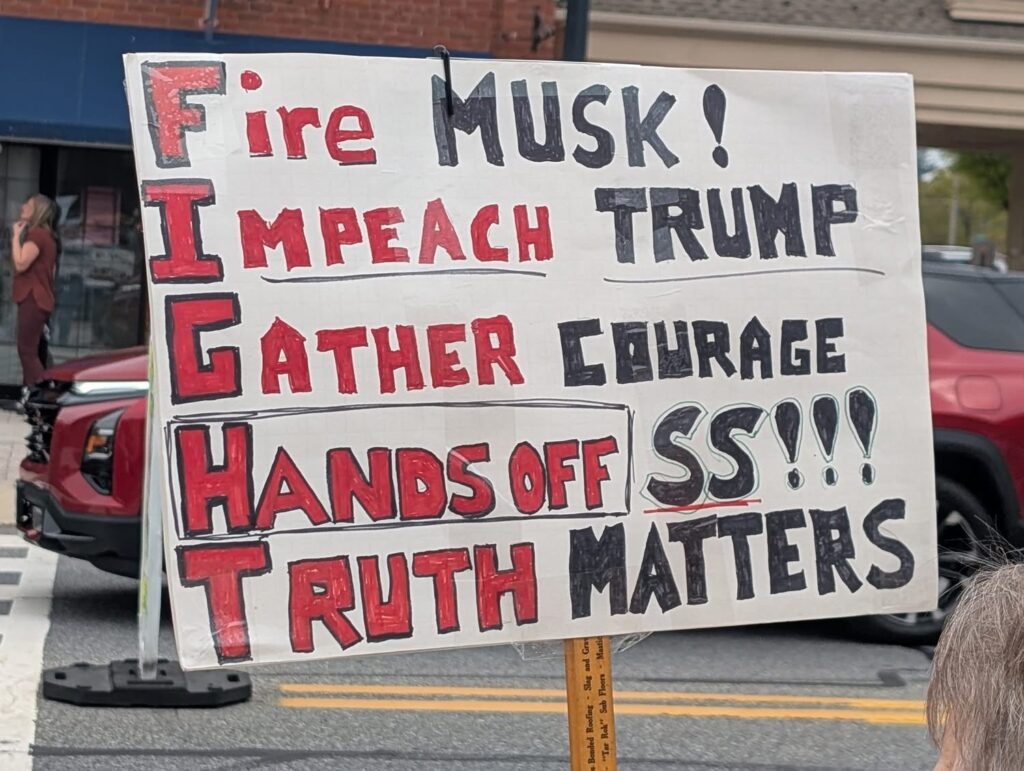 Fire MUSK!
IMPEACH TRUMP
GATHER COURAGE
HANDS OFF SS!!!
TRUTH MATTERS
Bonded Roofing - Slag and
"Tar Rok" Sub Floors -